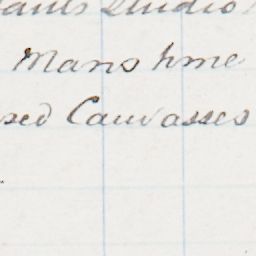 Studio
Mans hme
sed Canvasses